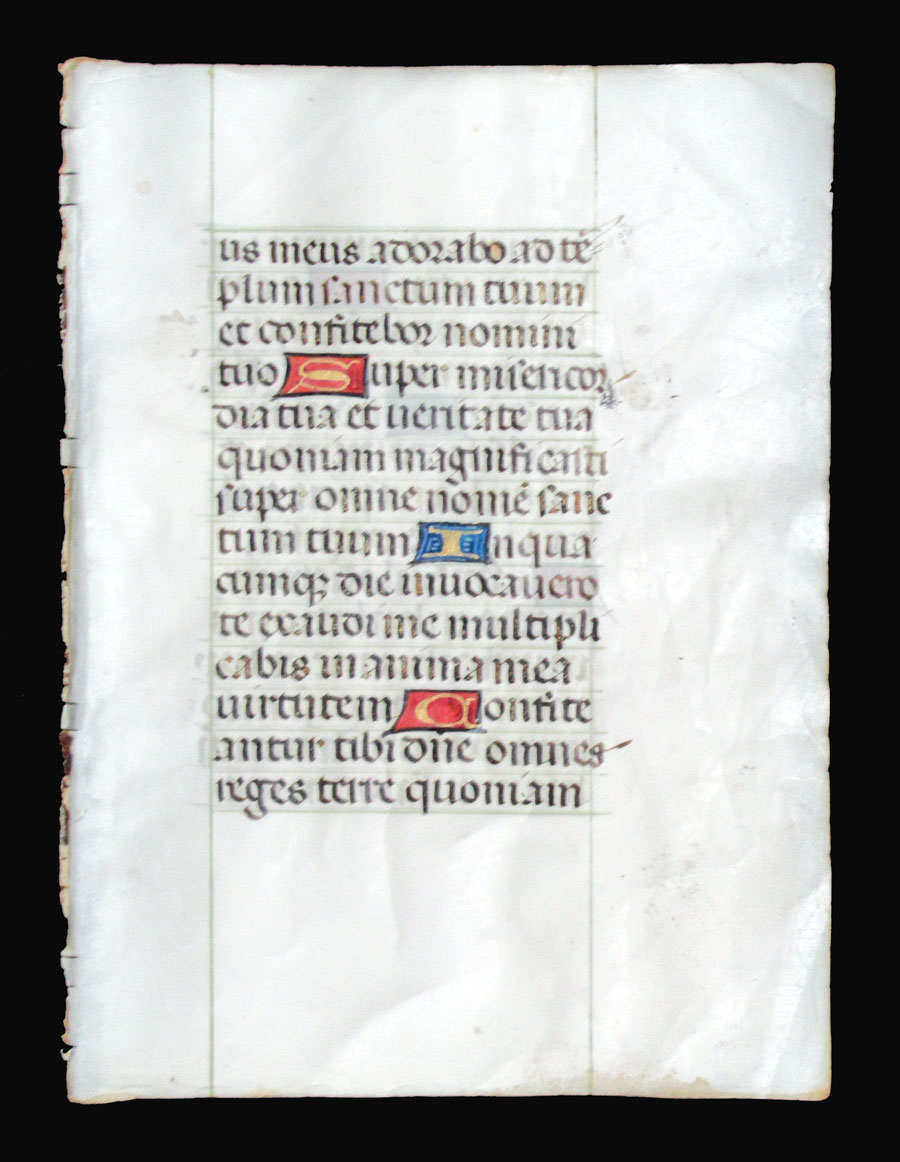 us meus adorabo ad tē
plum sanctum tuum
et confitebor nomini
tuo Super misericor
dia tua et ueritate tua
quoniam magnificasti
super omne nomē sanc
tum tuum In qua
cumqꝫ die inuocauero
te exaudi me multipli
cabis in anima mea
uirtutem Confite
antur tibi dn̄e omnes
reges terre quoniam